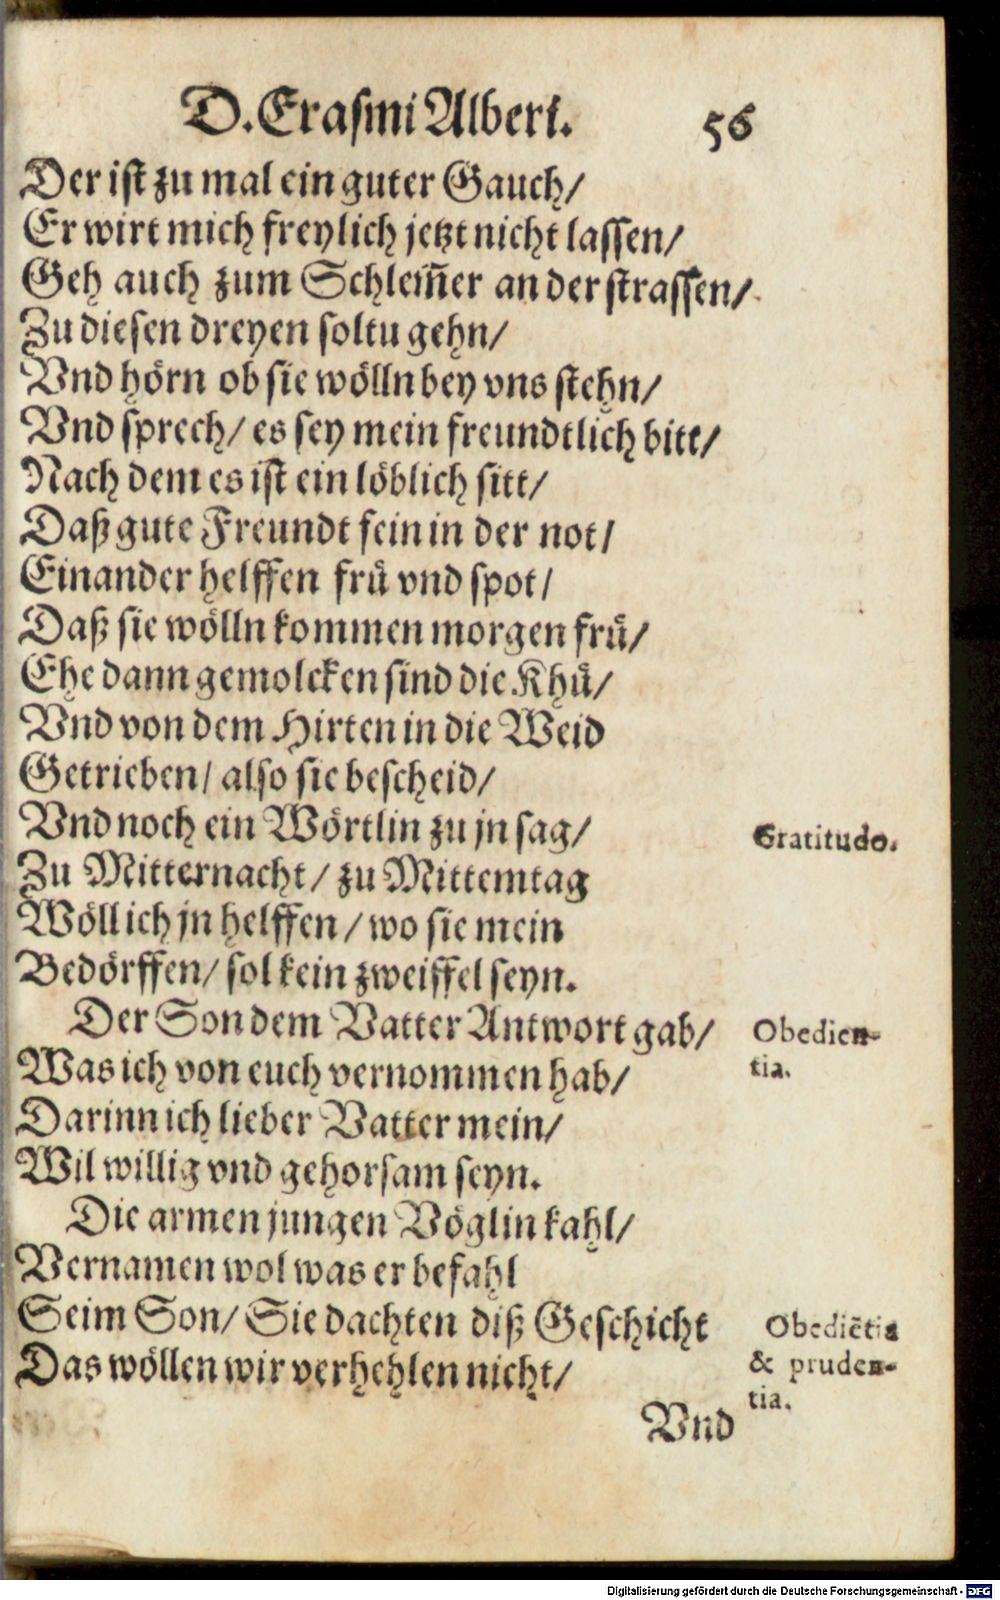 D. Erasmi Alberi. 56
Der ist zu mal ein guter Gauch/
Er wirt mich freylich jetzt nicht lassen/
Geh auch zum Schlem̃er an der strassen/
Zu diesen dreyen soltu gehn/
Vnd hörn ob sie wölln bey vns stehn/
Vnd sprech/ es sey mein freundtlich bitt/
Nach dem es ist ein löblich sitt/
Daß gute Freundt fein in der not/
Einander helffen frü vnd spot/
Daß sie wölln kommen morgen frü/
Ehe dann gemolcken sind die Khü/
Vnd von dem Hirten in die Weid
Getrieben/ also sie bescheid/
Vnd noch ein Wörtlin zu jn sag/
Gratitudo.
Zu Mitternacht/ zu Mittemtag
Wöll ich jn helffen/ wo sie mein
Bedörffen/ sol kein zweiffel seyn.
Der Son dem Vatter Antwort gab/
Obedien-
tia.
Was ich von euch vernommen hab/
Darinn ich lieber Vatter mein/
Wil willig vnd gehorsam seyn.
Die armen jungen Vöglin kahl/
Vernamen wol was er befahl
Seim Son/ Sie dachten diß Geschicht
Obediẽtia
& pruden-
tia.
Das wöllen wir verhehlen nicht/
Vnd
Digitalisierung gefördert durch die Deutsche Forschungsgemeinschaft - DFG